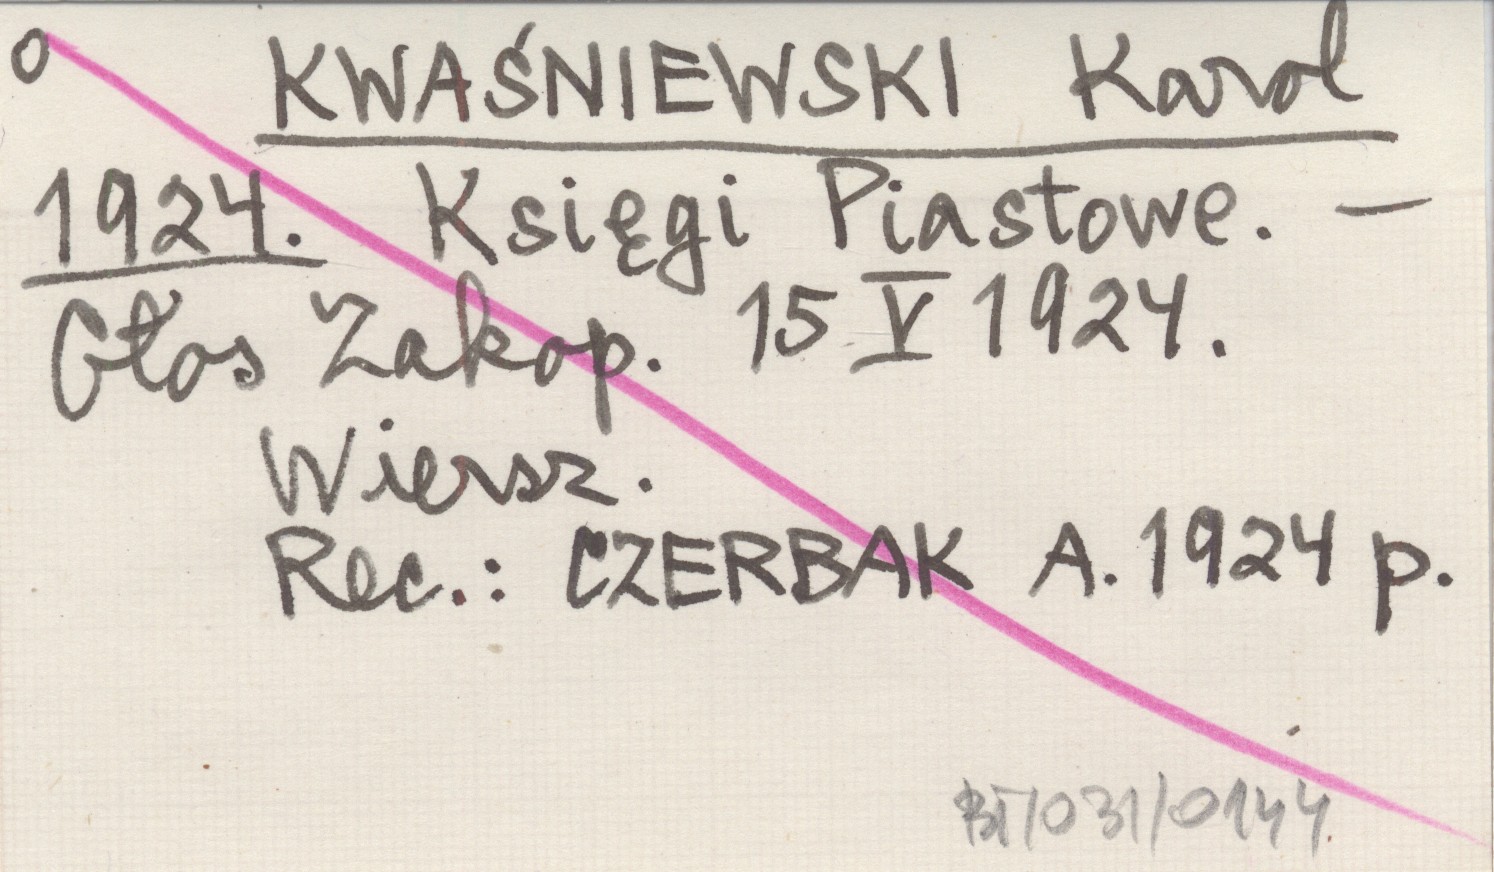 o KWAŚNIEWSKI Karol
1924. Księgi Piastowe. —
Głos Zakop. 15 V 1924.
Wiersz.
Rec.: CZERBAK A. 1924 p.
BT/031/0144